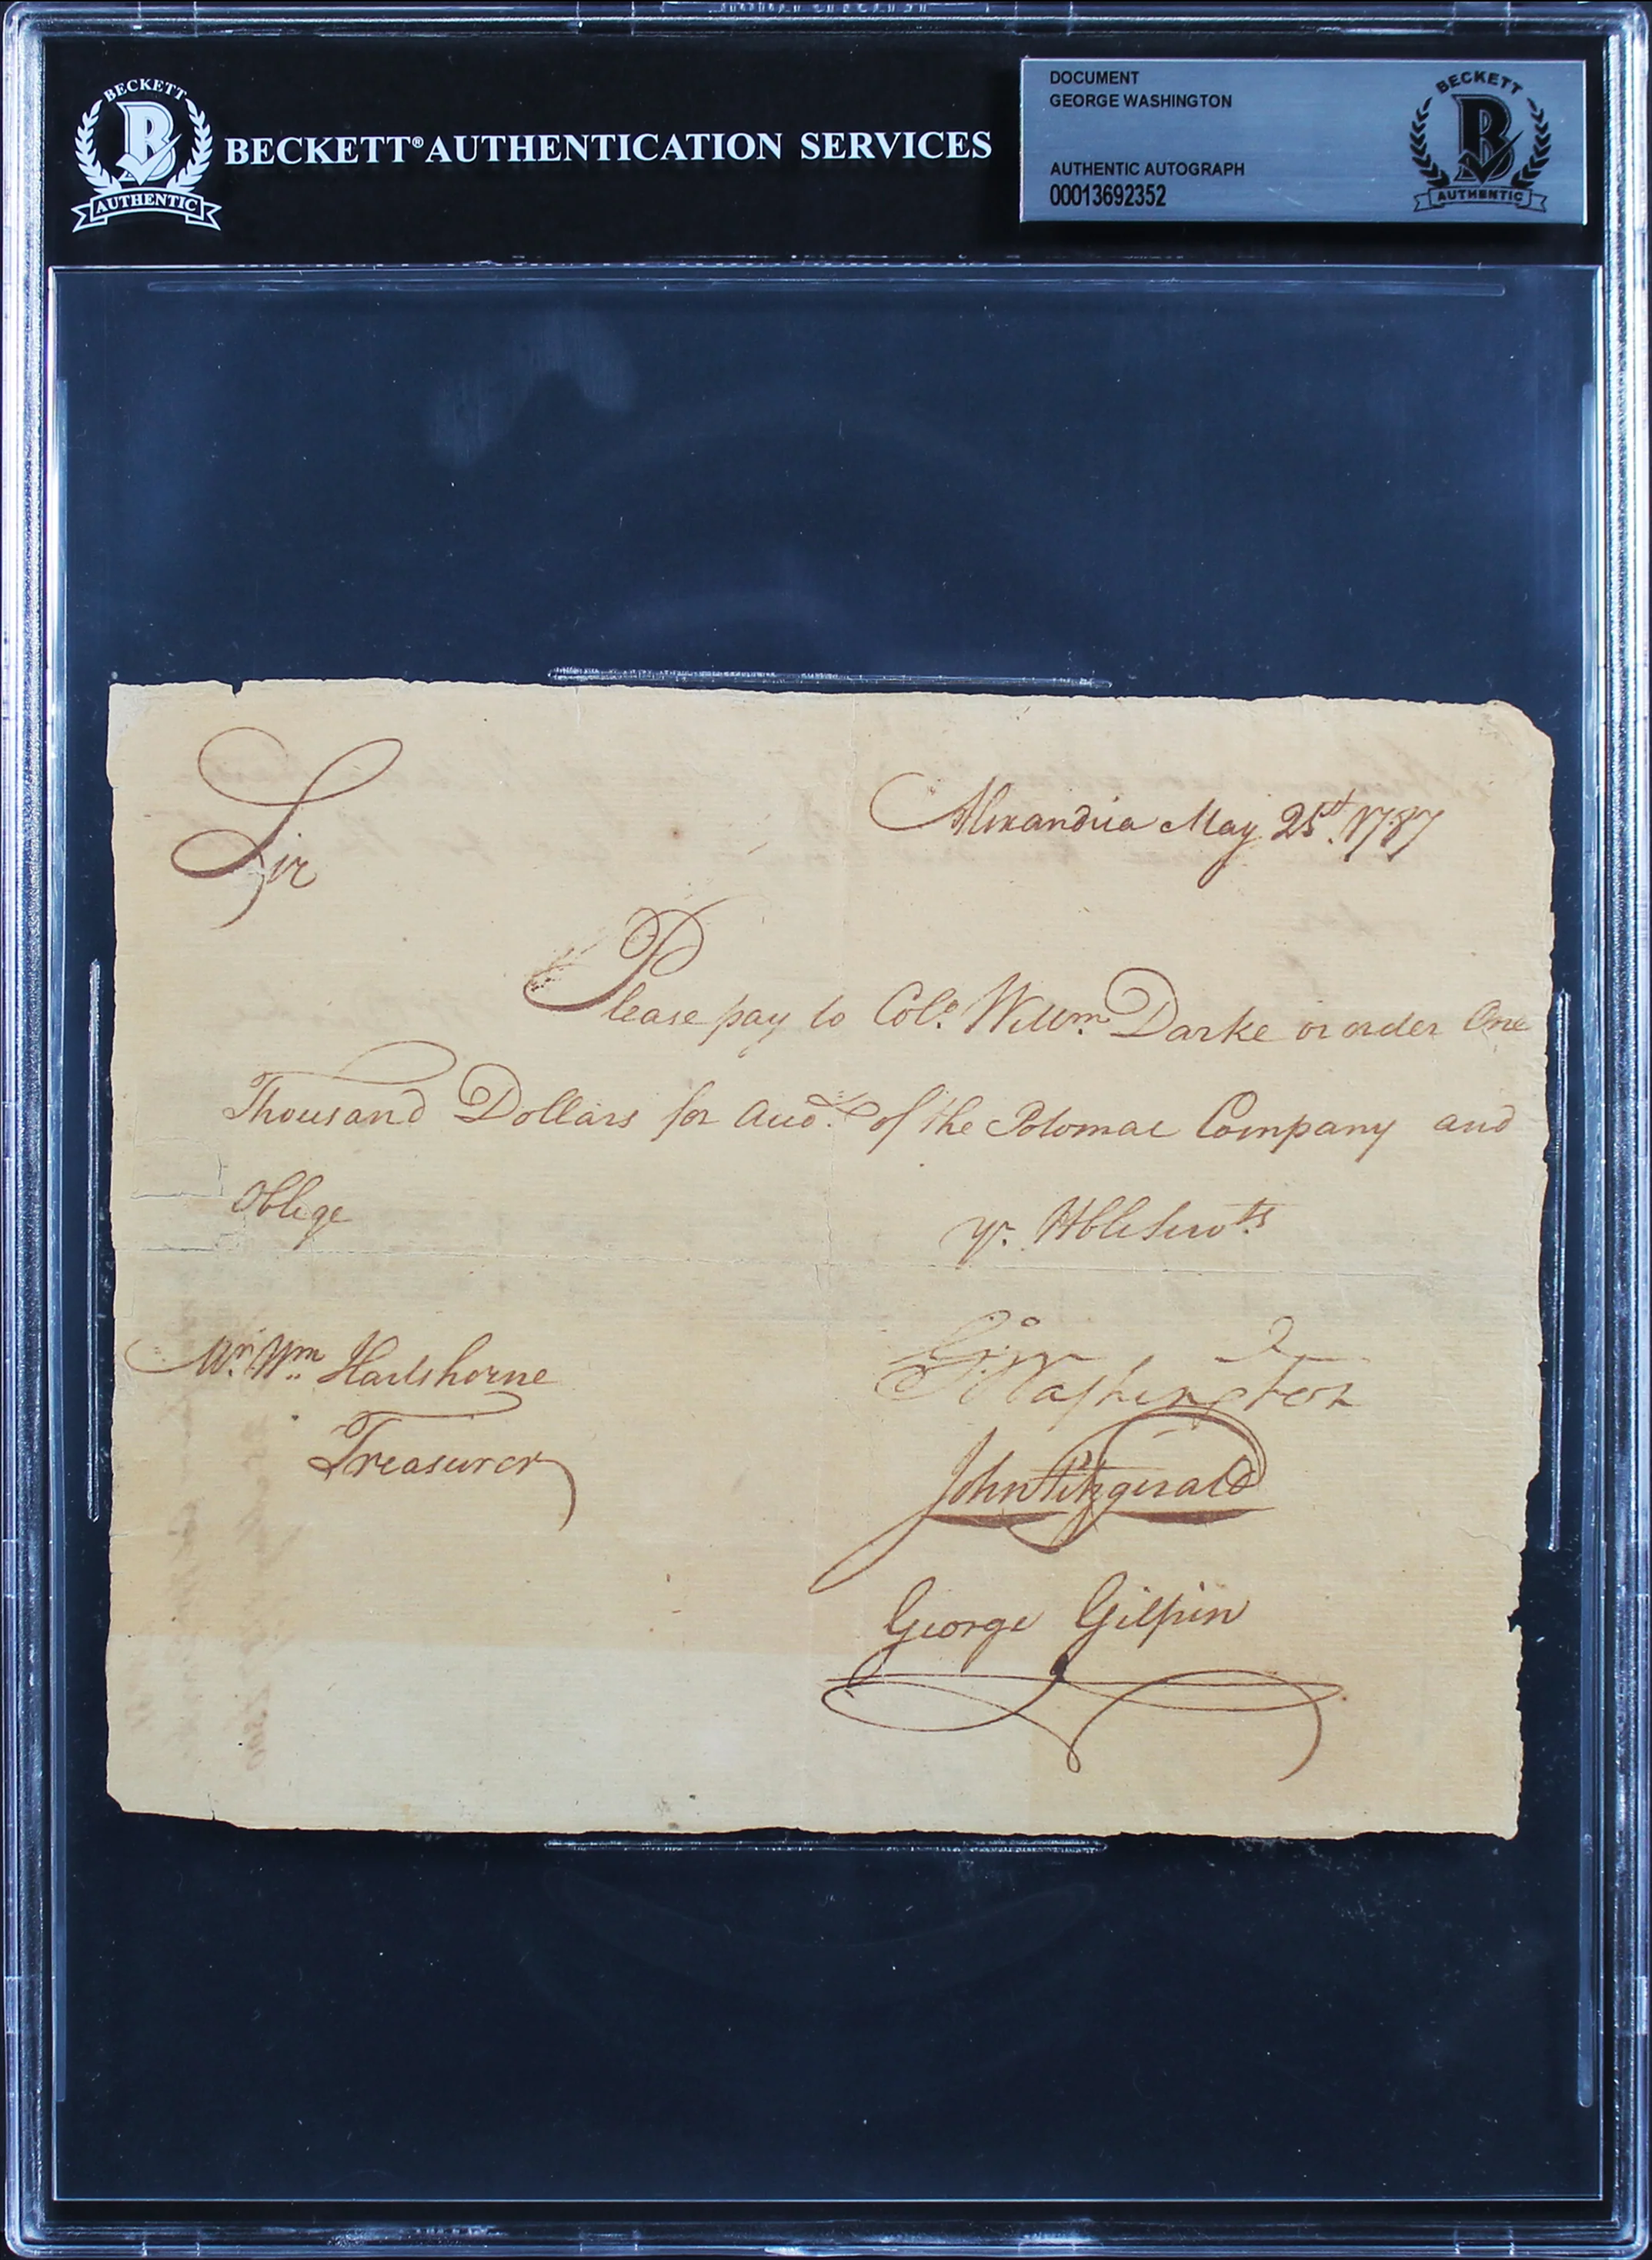 BECKETT
B
AUTHENTIC
BECKETT® AUTHENTICATION SERVICES
DOCUMENT
GEORGE WASHINGTON
AUTHENTIC AUTOGRAPH
00013692352
BECKETT
B
AUTHENTIC
Sir
Alexandria May 25th. 1787
Please pay to Colo. Willm. Darke or order One
Thousand Dollars for Acco.t of the Potomac Company and
Oblige
yr. Hble Servts
Mr. Wm Hartshorne
Go: Washington
Treasurer
John Fitzgerald
George Gilpin